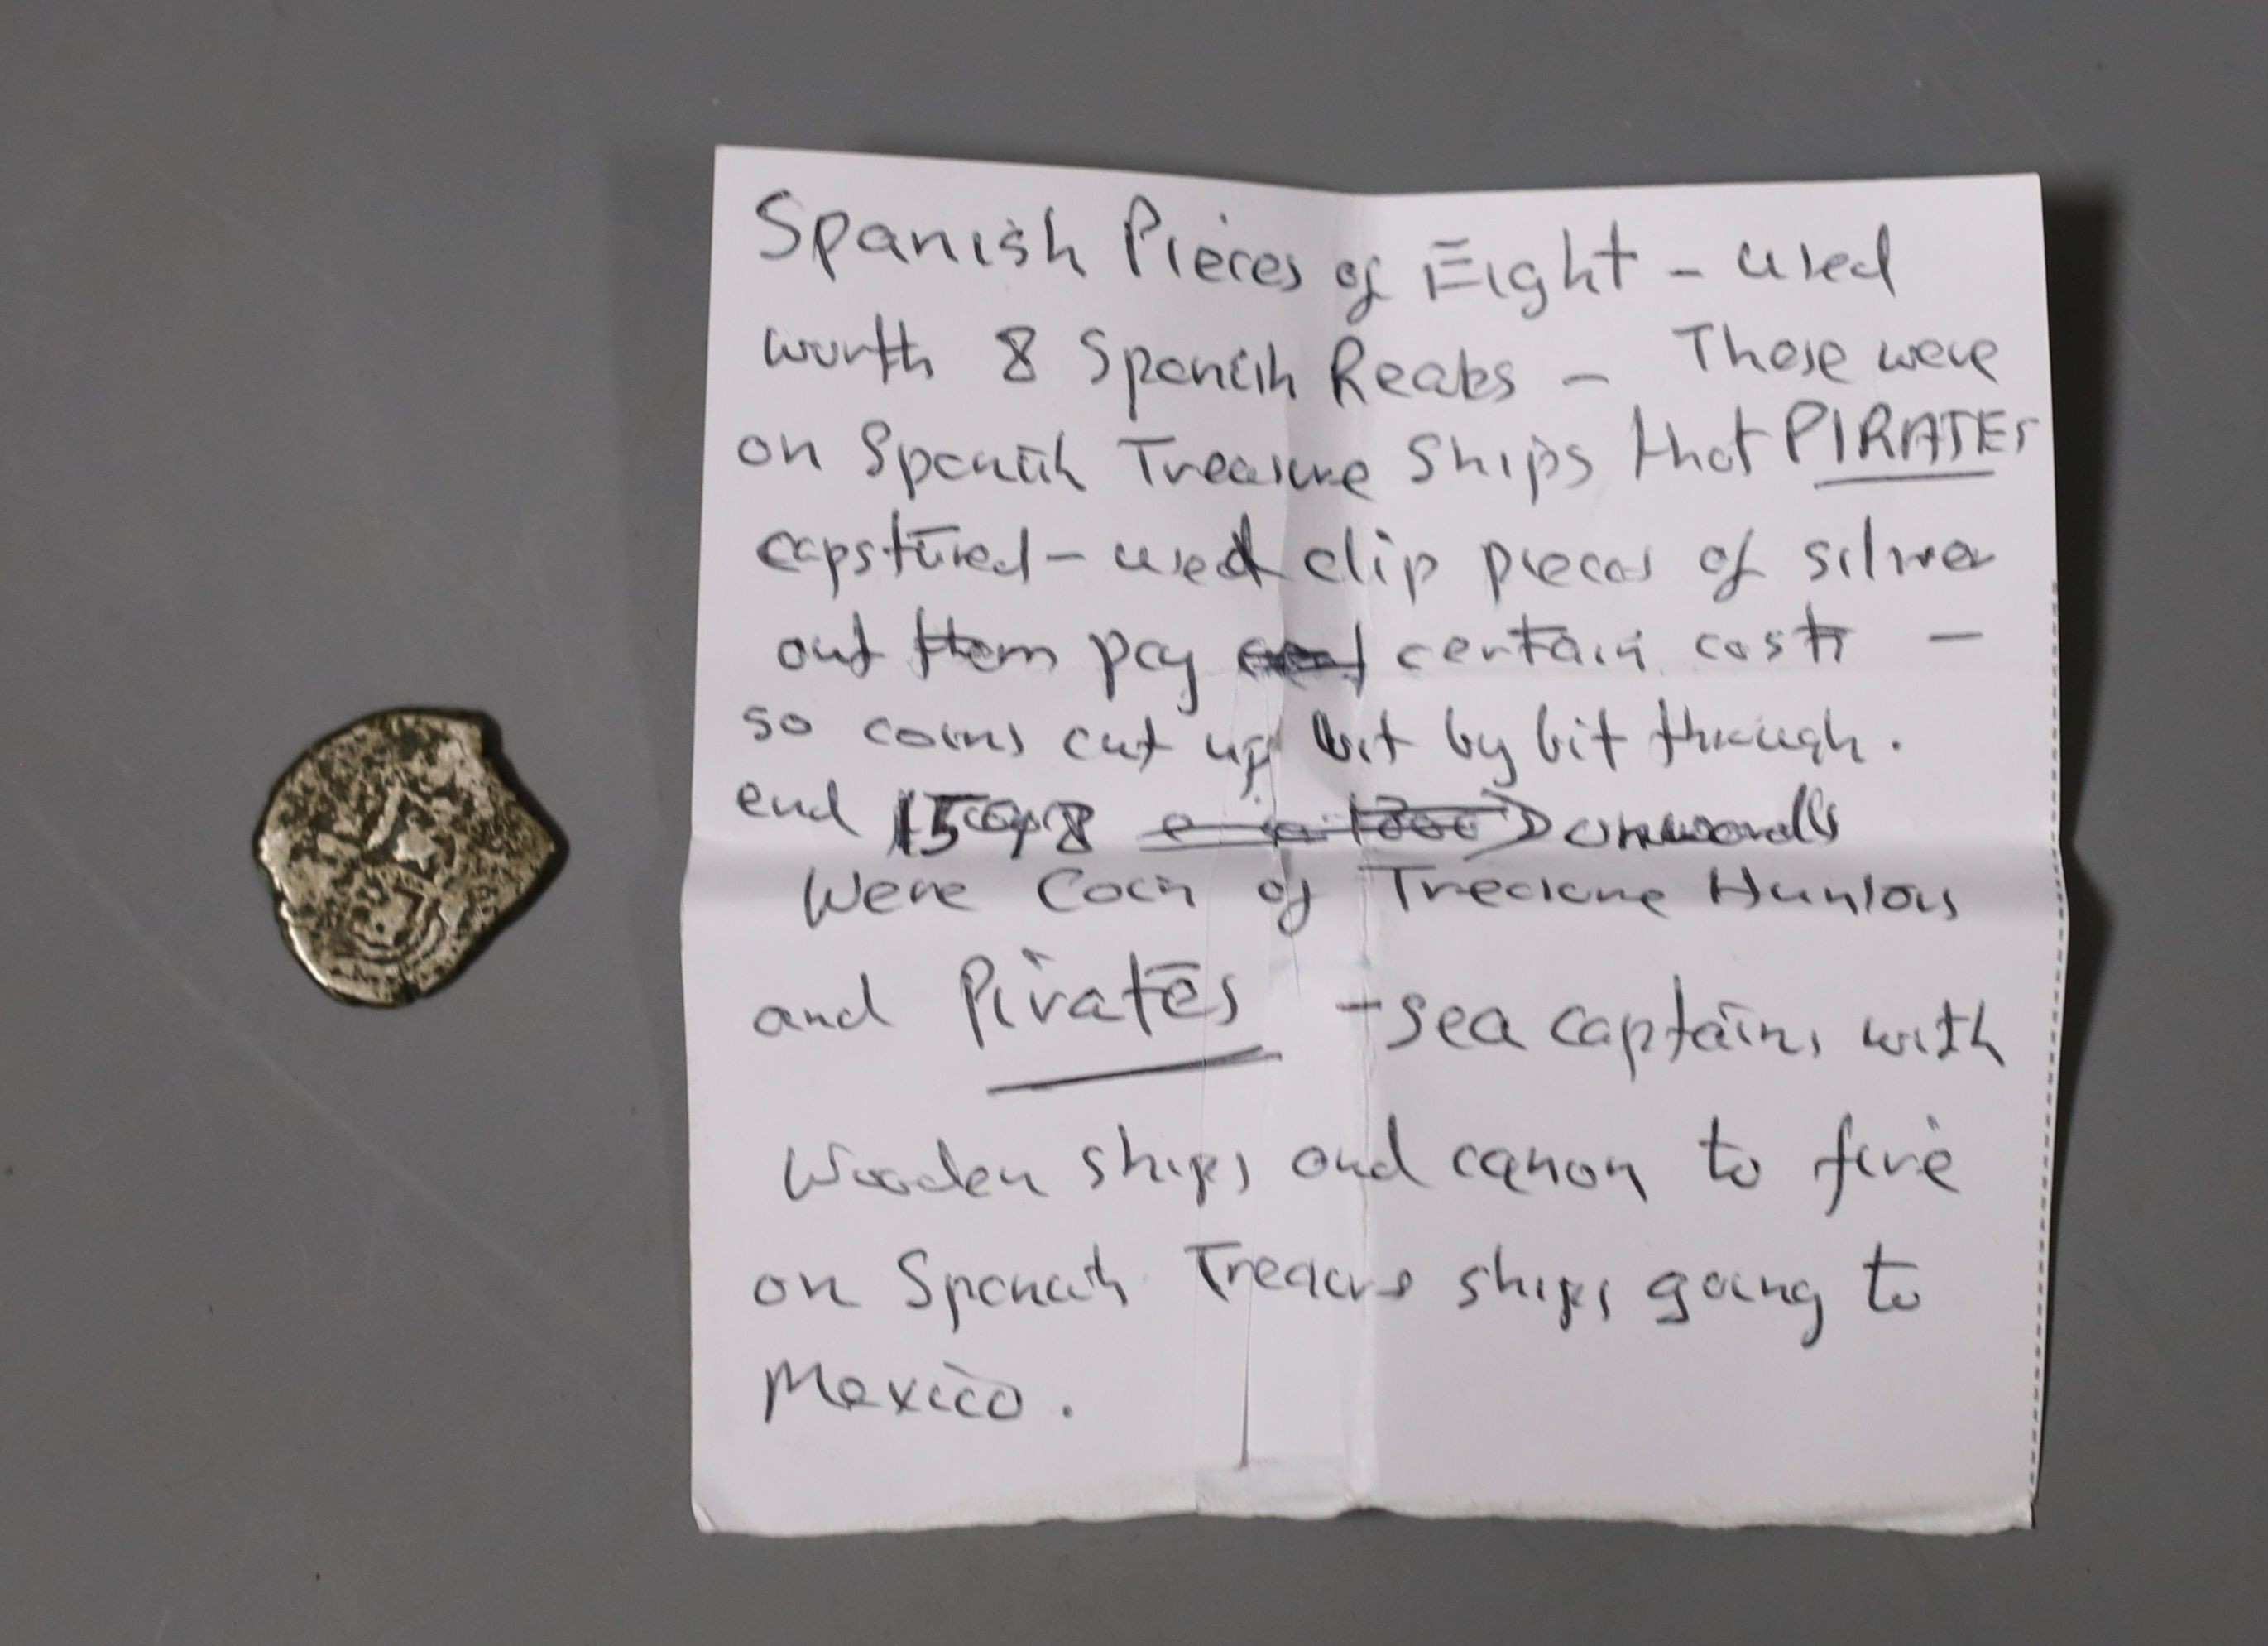 Spanish Pieces of Eight - used
worth 8 Spanish Reals - These were
on Spanish Treasure Ships that PIRATES
capstured - used clip pieces of silver
out them pay certain costs -
so coins cut up bit by bit through.
end onwards
Were Coin of Treasure Hunters
and Pirates - sea captains with
Wooden ships and canon to fire
on Spanish Treasure ships going to
Mexico.